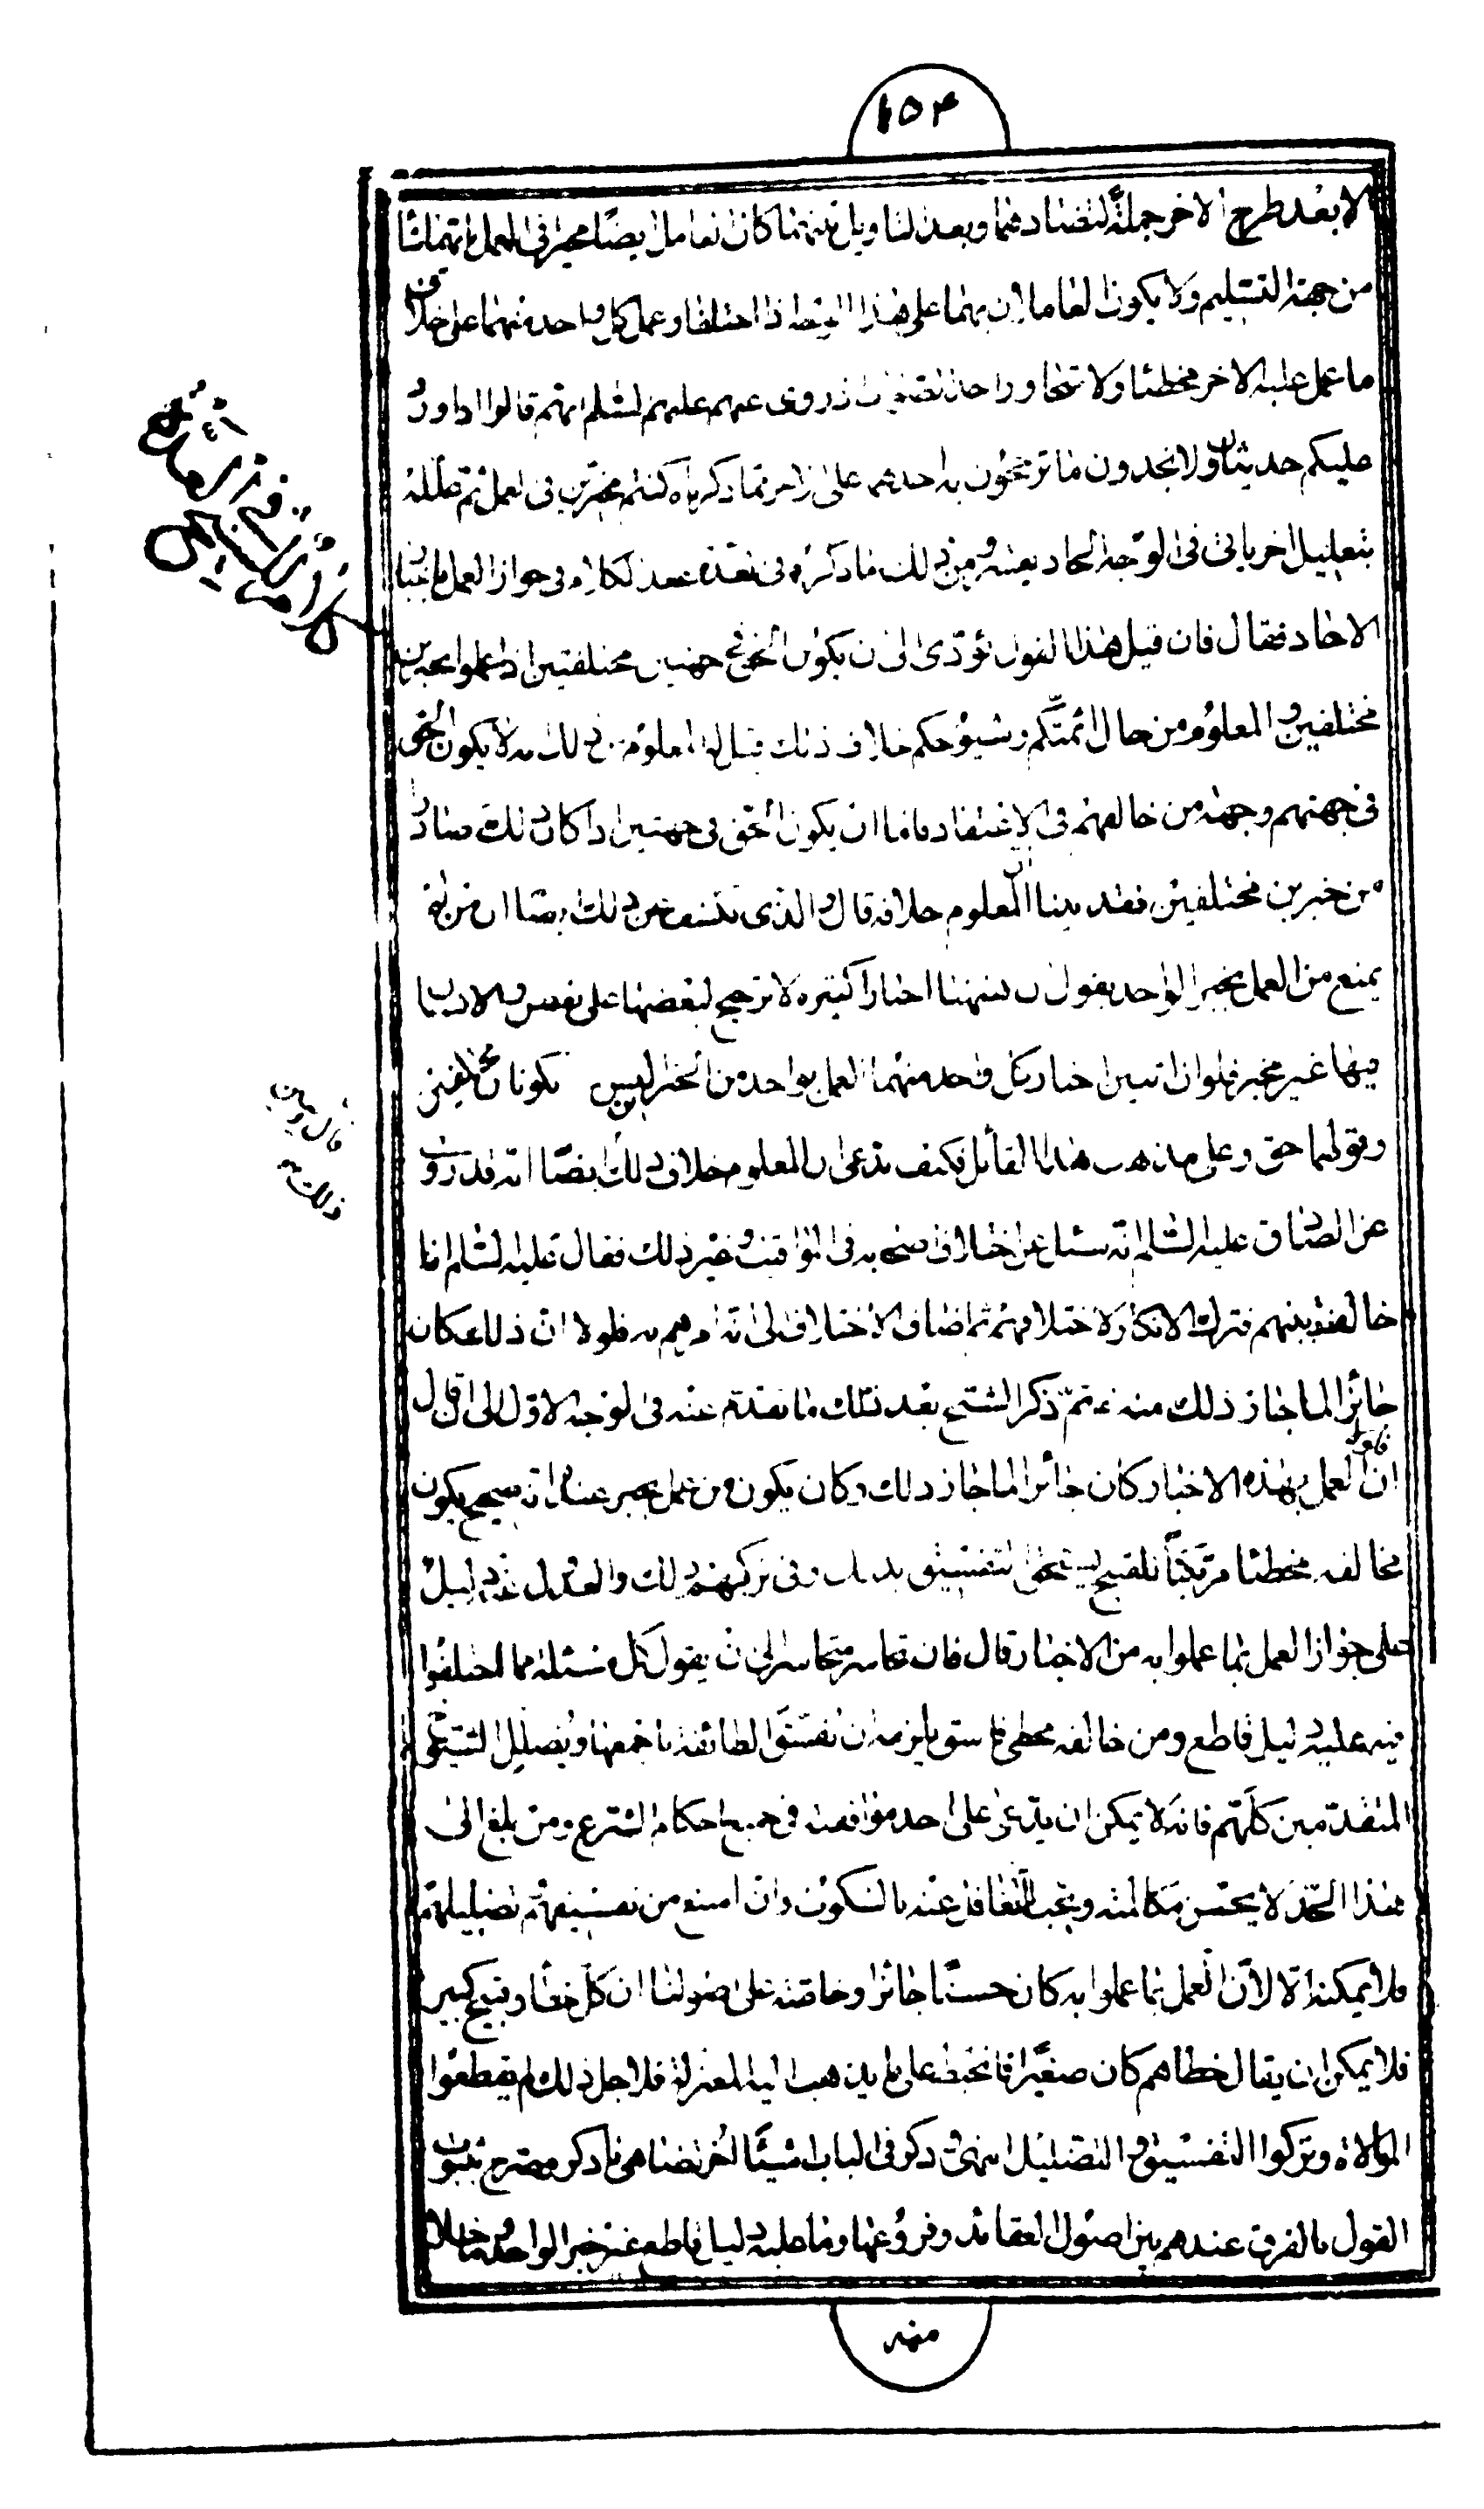 ١٥٤
الا بعد طرح الاخر جملة لتضادهما وبعد التاويل بينهما كان العامل ايضا مخيرا في العمل بايهما شاء
من جهة التسليم ولا يكون العاملان بهما على هذا الوجه اذا اختلفا وعمل كل واحد منهما على خلاف
ما عمل عليه الاخر مخطئا ولا متجاوزا حد الصواب اذ روى عنهم عليهم السلم انهم قالوا اذا ورد
عليكم حديثان ولا تجدون ما ترجحون به احدهما على الاخر مما ذكرناه كنتم مخيرين في العمل ثم علله
بتعليل اخر ياتي في الوجه الحادي عشر ومن ذلك ما ذكره في العدة بعد الكلام في جواز العمل باخبار
الاحاد فقال فان قيل هذا القول يؤدى الى ان يكون الحق في جهتين مختلفتين اذا عملوا بخبرين
مختلفين والمعلوم من حال ائمتكم وشيوخكم خلاف ذلك قيل له المعلوم من ذلك انه لا يكون الحق
في جهتهم وجهة من خالفهم في الاعتقاد فاما ان يكون الحق في جهتين اذا كان ذلك صادرا
من خبرين مختلفين فقد بينا ان المعلوم خلافه قال والذى يكشف عن ذلك ايضا ان من
يمنع من العمل بخبر الواحد يقول ان ههنا اخبارا كثيرة لا ترجيح لبعضها على بعض والانسان
فيها غير مخير فلو ان اثنين اختار كل واحد منهما العمل بواحد من الخبرين اليس يكونان مختلفين
وقولهما حق وعلى مذهب هذا القائل فكيف يدعى ان المعلوم خلاف ذلك ايضا انه قد روى
عن الصادق عليه السلم انه سئل عن اختلاف اصحابه في المواقيت وغير ذلك فقال عليه السلم انا
خالفت بينهم فترك الانكار لاختلافهم ثم اضاف الاختلاف الى انه امرهم به فلولا ان ذلك كان
جائزا لما جاز ذلك منه ع ثم ذكر الشيخ بعد ذلك ما تقدم عنه في الوجه الاول الى ان قال
ان العمل بهذه الاخبار كان جائزا لما جاز ذلك وكان يكون من عمل بخبر عنده انه صحيح يكون
مخالفه مخطئا مرتكبا للقبيح يستحق التفسيق بذلك وفي تركهم ذلك والعدول عنه دليل
على جواز العمل بما عملوا به من الاخبار قال فان تجاسر متجاسر الى ان يقول كل مسئلة مما اختلفوا
فيه عليه دليل قاطع ومن خالفه مخطئ فاسق يلزمه ان يفسق الطائفة باجمعها ويضلل الشيوخ
المتقدمين كلهم فانه لا يمكن ان يدعى على احد موافقته في جميع احكام الشرع ومن بلغ الى
هذا الحد لا يحسن مكالمته ويجب التغافل عنه بالسكوت وان امتنع من تفسيقهم وتضليلهم
فلا يمكنه الا لان العمل بما عملوا به كان حسنا جائزا وخاصة على اصولنا ان كل خطأ وقبيح كبير
فلا يمكن ان يقال خطاهم كان صغيرا فانحبط على ما يذهب اليه المعتزلة فلاجل ذلك لم يقطعوا
الموالاة وتركوا التفسيق والتضليل انتهى وذكر في الباب اشياء اخر تضاهى ما ذكر مصرح بثبوت
القول بالفرق عندهم بين اصول العقائد وفروعها وما عليه دليل قاطع غير خبر الواحد وما خلا
منه